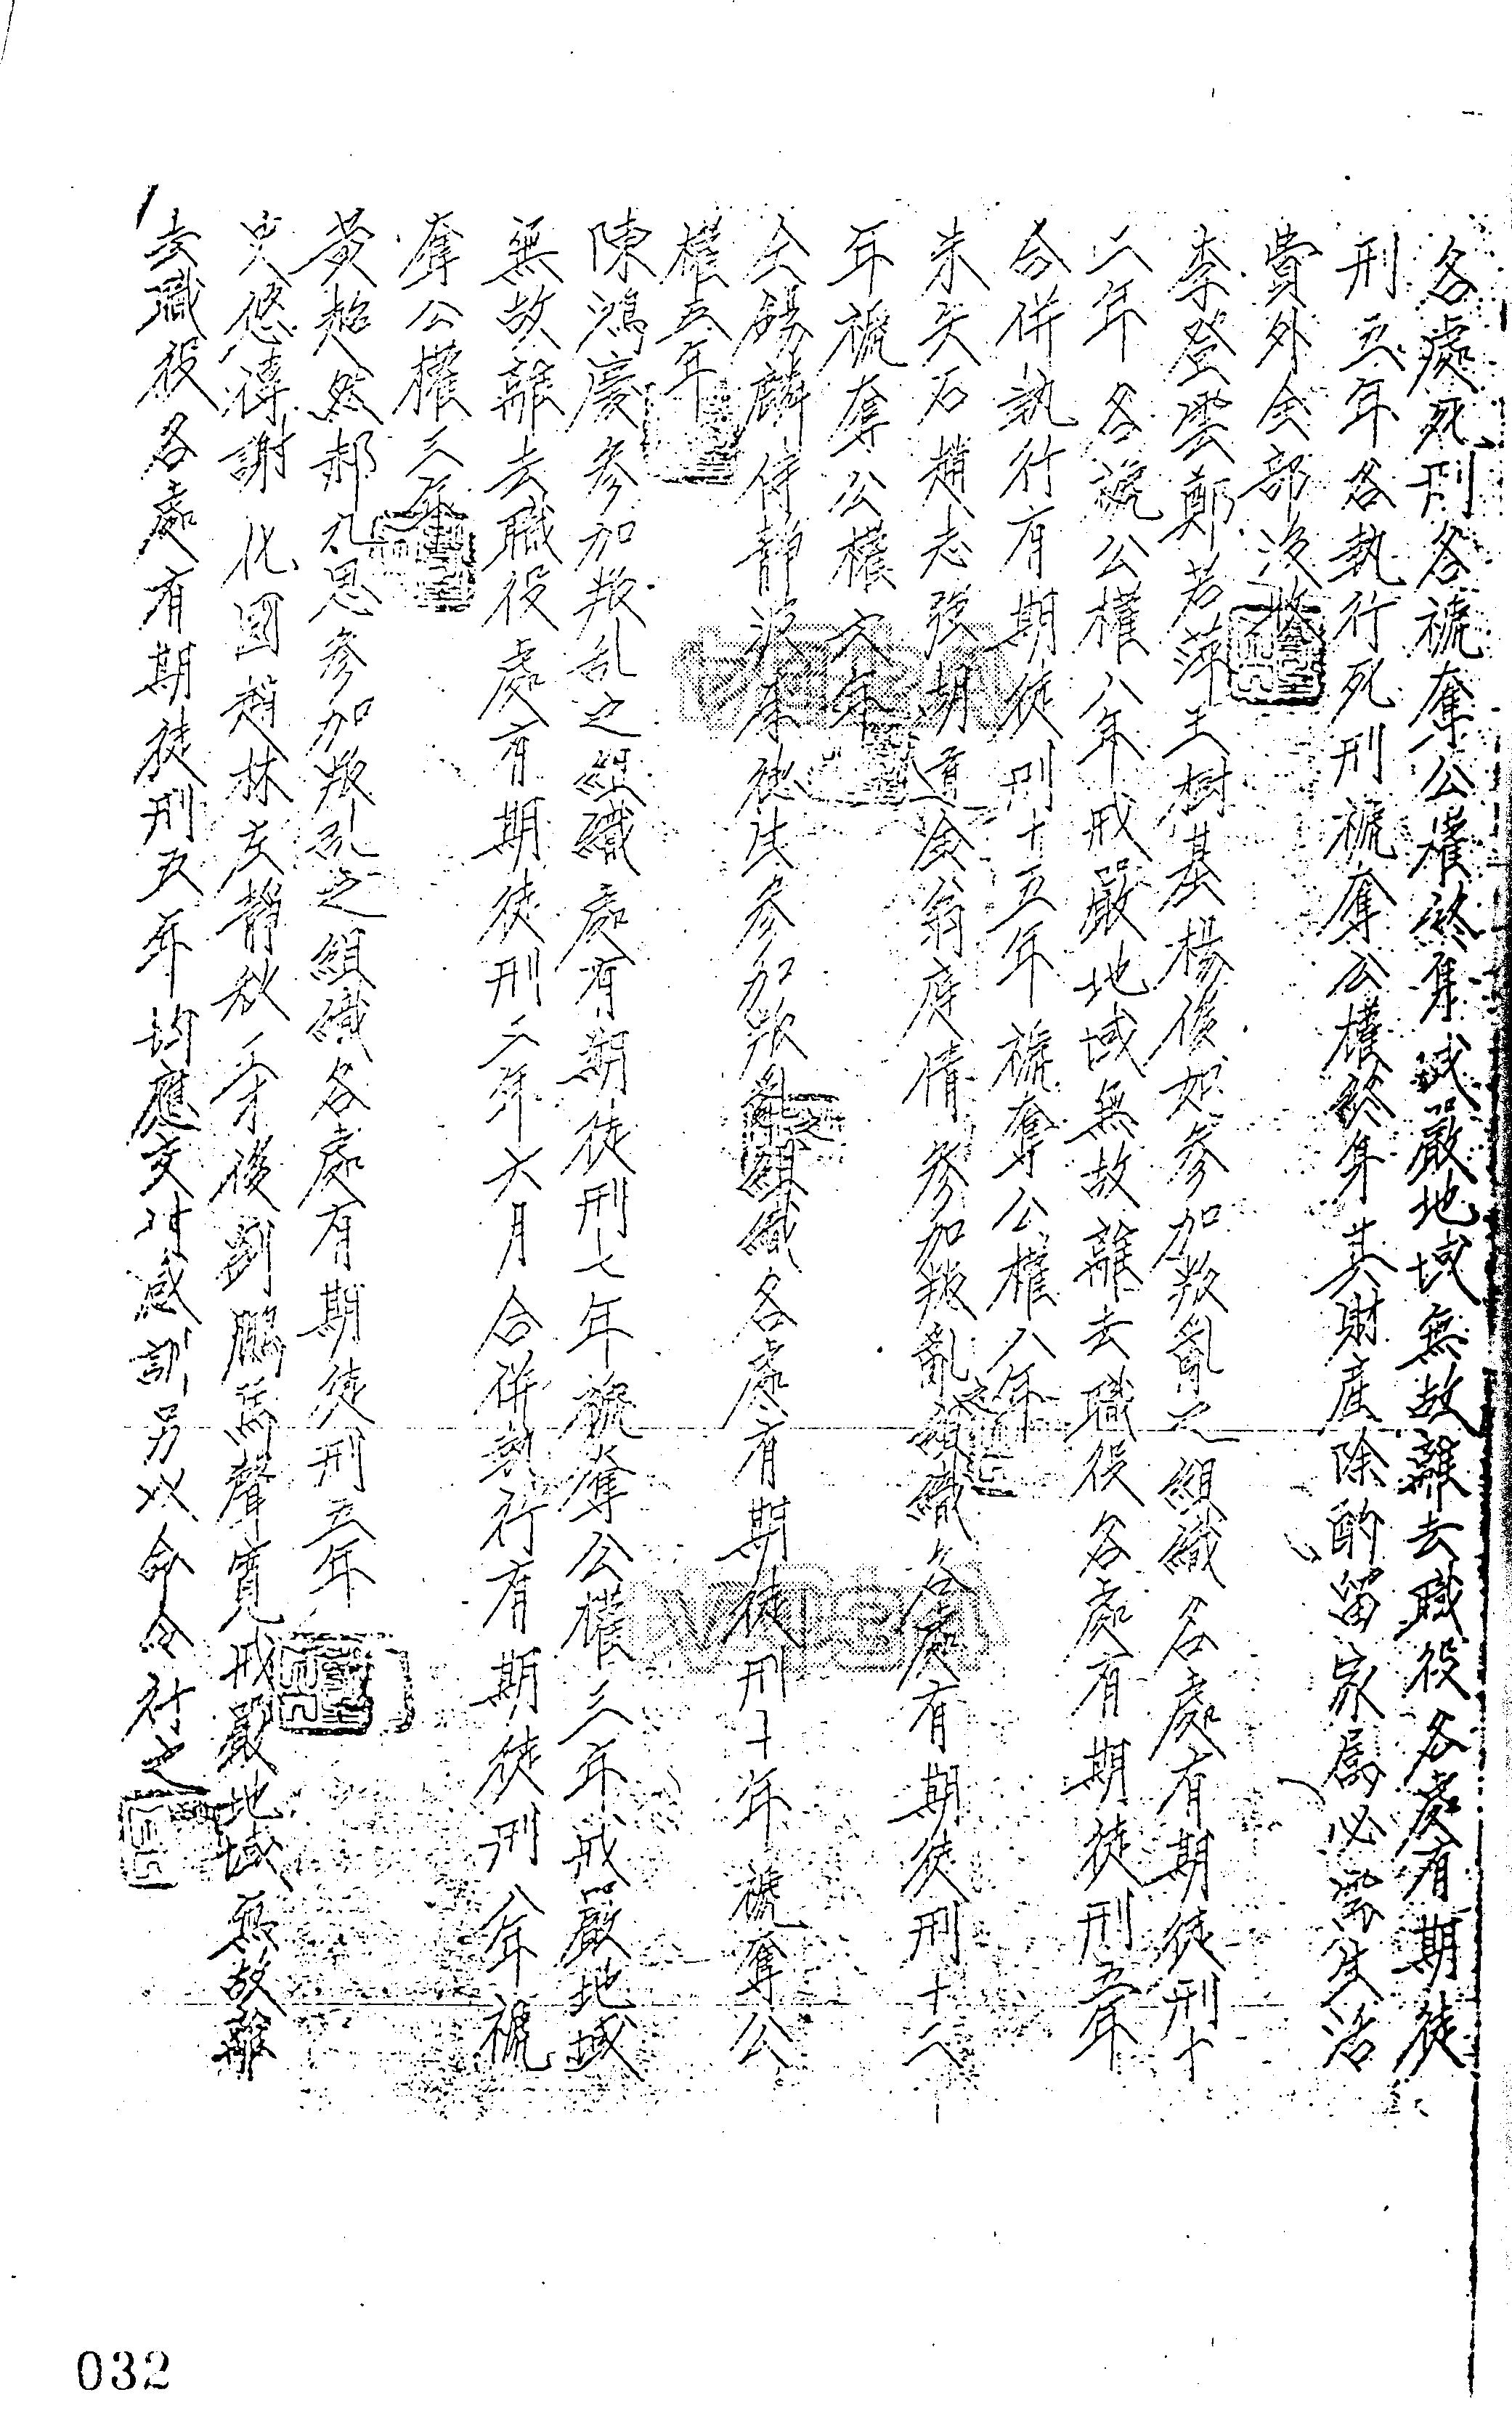 各處死刑各褫奪公權終身戒嚴地域無故離去職役各處有期徒
刑五年各執行死刑褫奪公權終身其財產除酌留家屬必需生活
費外全部沒收
李登雲鄭若萍王樹基楊俊如參加叛亂之組織各處有期徒刑十
二年各褫公權八年戒嚴地域無故離去職役各處有期徒刑五年
合併執行有期徒刑十五年褫奪公權八年
朱天石趙志強胡道金翁庭倩參加叛亂之組織各處有期徒刑十二
年褫奪公權六年
仝錫麟侍靜波康從生參加叛亂之組織各處有期徒刑十年褫奪公
權五年
陳鴻慶參加叛乱之組織處有期徒刑七年褫奪公權三年戒嚴地域
無故離去職役處有期徒刑二年六月合併執行有期徒刑八年褫
奪公權三年
黃超然郝九思參加叛乱之組織各處有期徒刑五年
史悠濤謝化國趙林左靜秋 後劉鵬 聲寬戒嚴地域無故離
去職役各處有期徒刑五年均應交付感訓另以命令行之
032